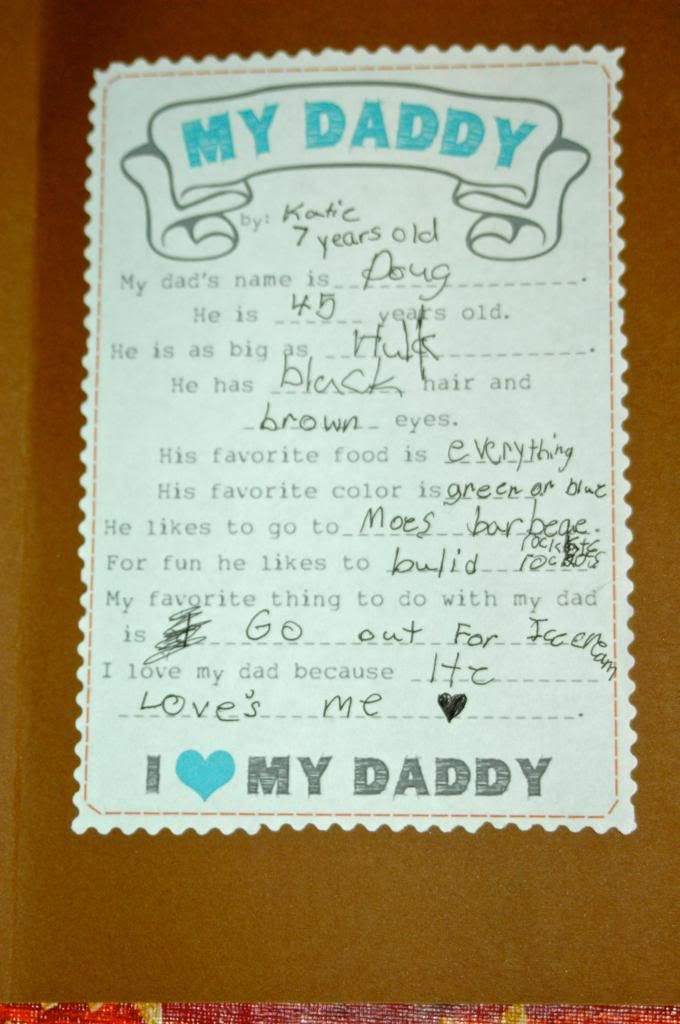 MY DADDY
by: Katie
7 years old
My dad's name is Doug.
He is 45 years old.
He is as big as Hulk.
He has black hair and
brown eyes.
His favorite food is everything
His favorite color is green or blue
He likes to go to Moes barbeqe.
rockets
For fun he likes to bulid
My favorite thing to do with my dad
is Go out For Icecream
I love my dad because He
Love's me ♥.
I ♥ MY DADDY